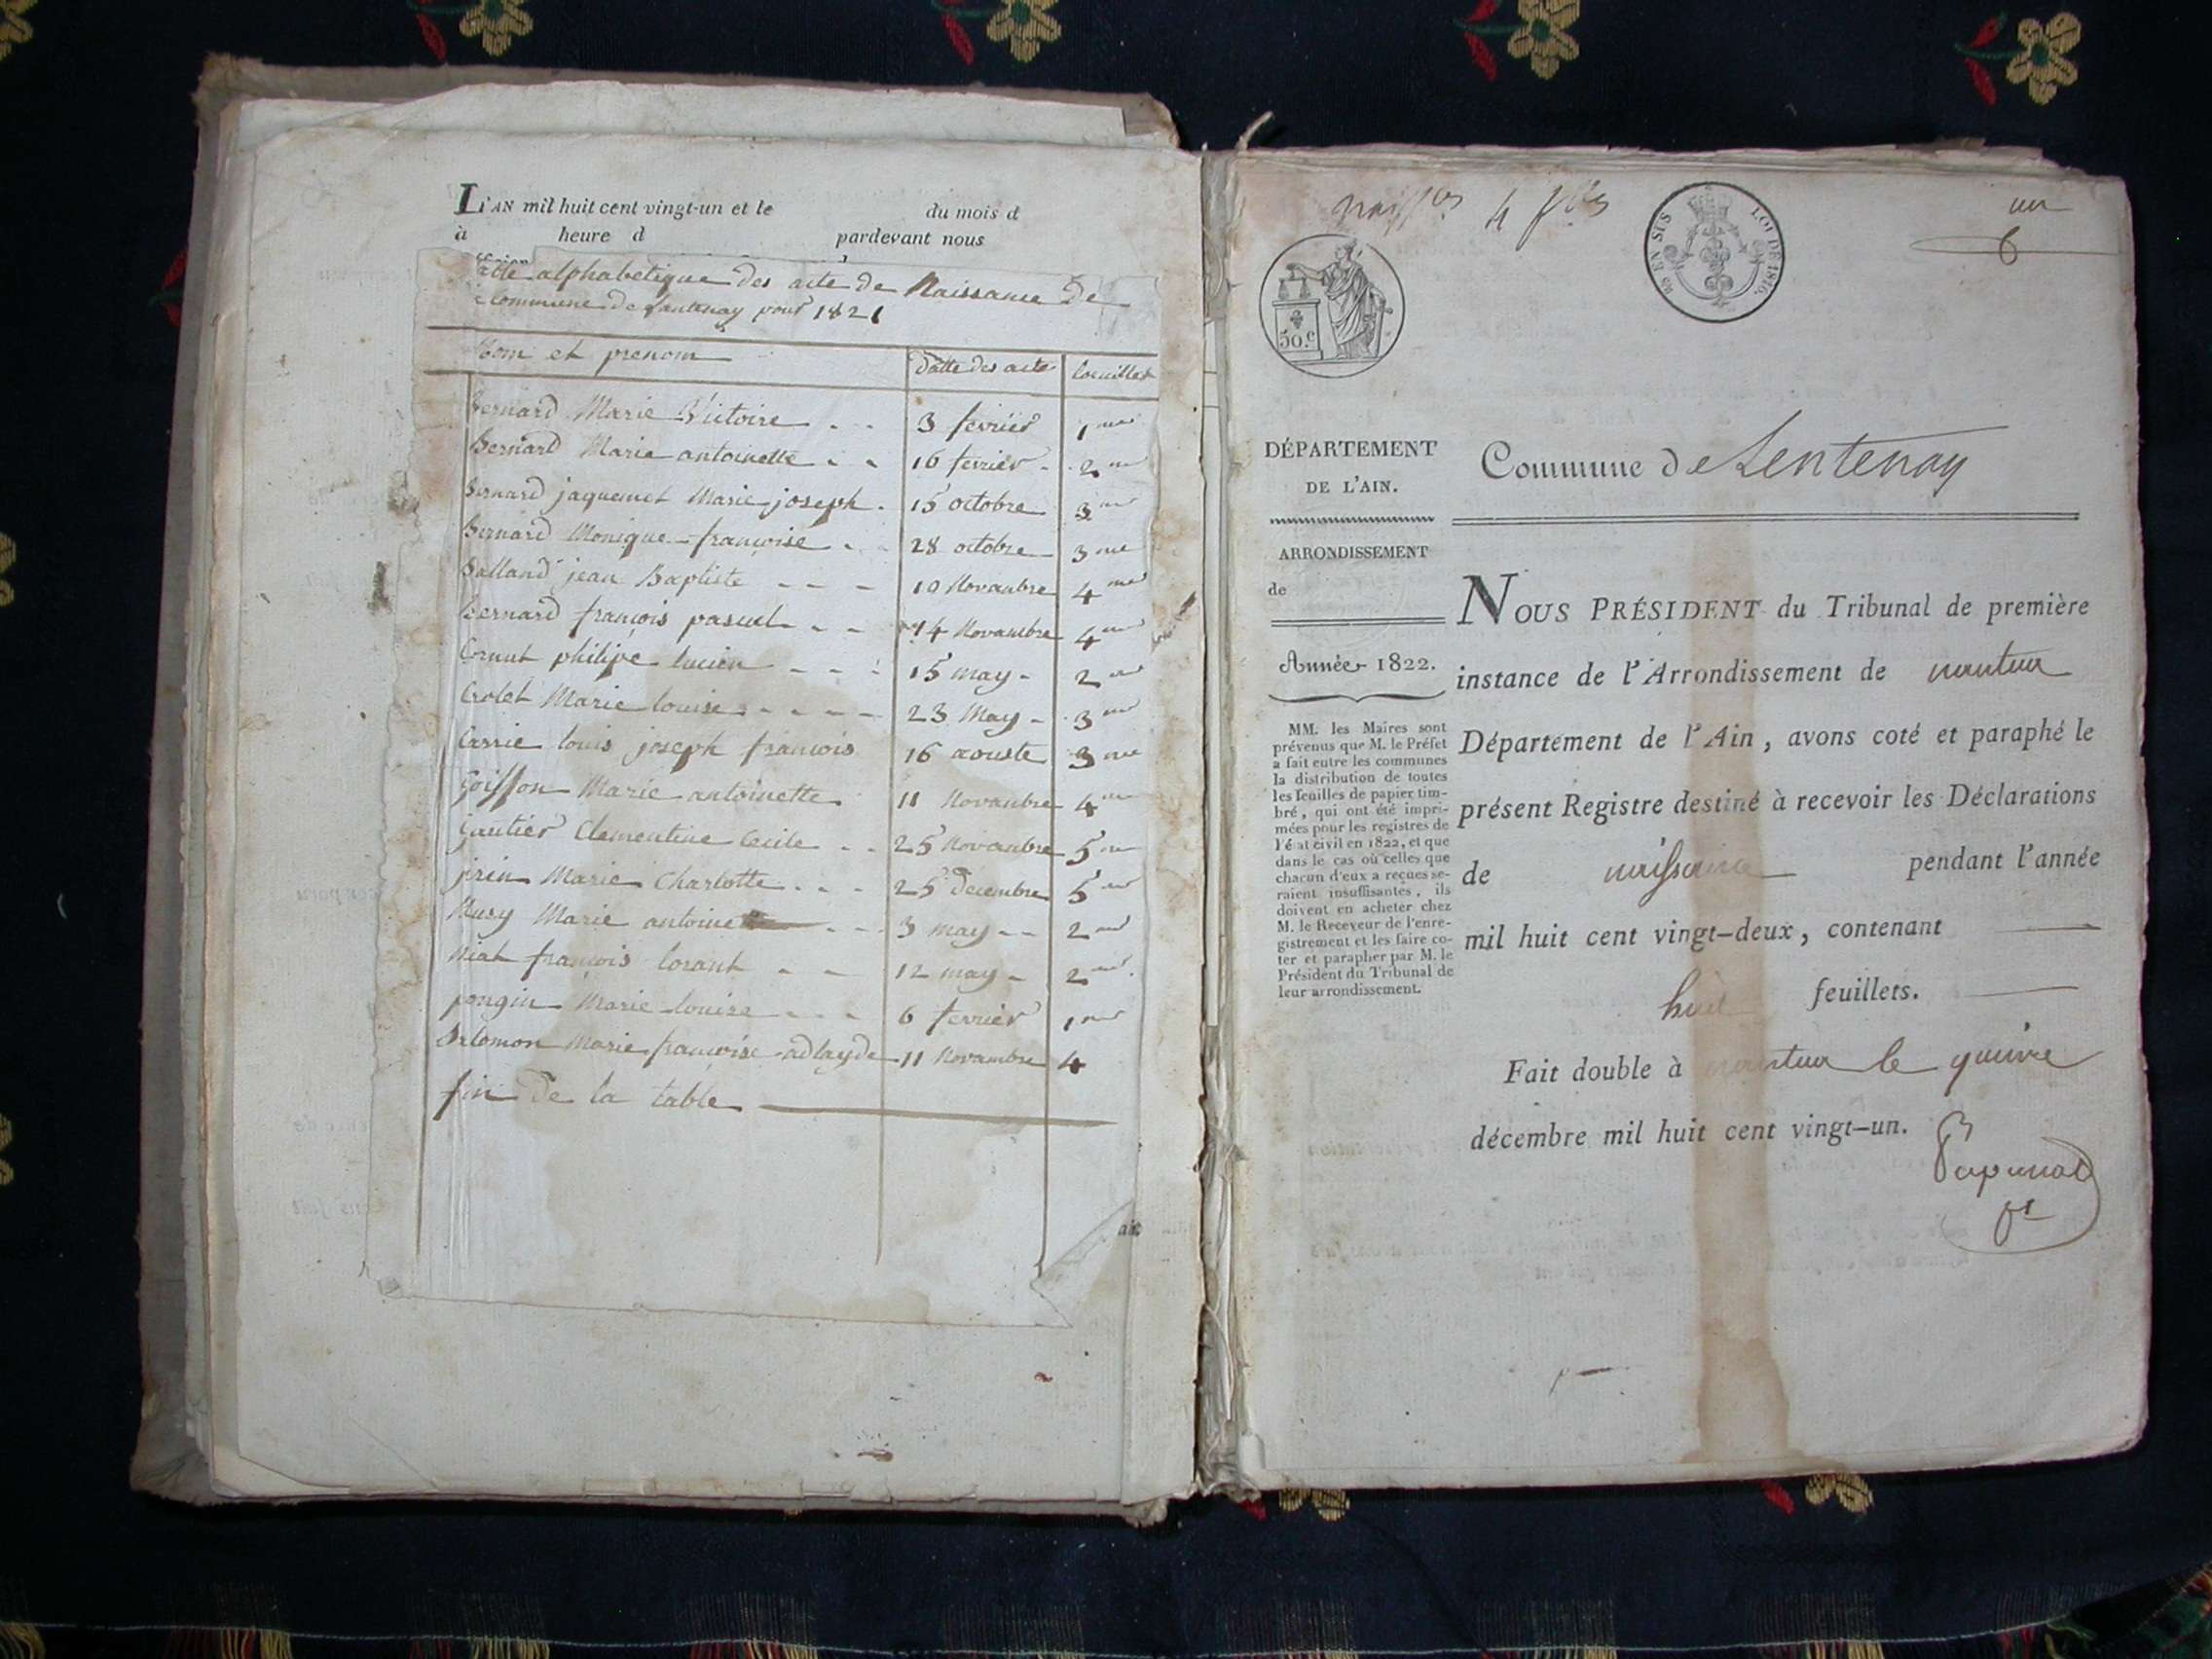 L'AN mil huit cent vingt-un et le du mois d
à heure d pardevant nous
table alphabetique des acte de Naissance de
Commune de Lantenay pour 1821
Nom et prenom datte des acte foeuillet
Bernard Marie Victoire 3 fevrier 1 me
Bernard Marie antoinette 16 fevrier 2 me
Bernard jaquemet Marie joseph 15 octobre 3 me
Bernard Monique françoise 28 octobre 3 me
Balland jean Baptiste 10 Novanbre 4 me
Bernard françois pascuel 14 Novambre 4 me
Cornut philipe lucien 15 may 2 me
Crolet Marie louise 23 May 3 me
Carrie louis joseph francois 16 aouste 3 me
Goiffon Marie antoinette 11 Novanbre 4 me
gautier Clementine Cecile 25 Novanbre 5 me
jirin Marie Charlotte 25 decembre 5 me
Mury Marie antoinette 3 may 2 me
Niat françois lorant 12 may 2 me
pongin Marie louise 6 fevrier 1 me
Salomon Marie françoise adlayde 11 Novambre 4
fin de la table
ait
4
un
6
LOI DE 1816.
EN SUS
50.c
DÉPARTEMENT
DE L'AIN.
Commune de Lentenay
ARRONDISSEMENT
de
Année 1822.
MM. les Maires sont
prévenus que M. le Préfet
a fait entre les communes
la distribution de toutes
les feuilles de papier tim-
bré, qui ont été impri-
mées pour les registres de
l'état civil en 1822, et que
dans le cas où celles que
chacun d'eux a reçues se-
raient insuffisantes, ils
doivent en acheter chez
M. le Receveur de l'enre-
gistrement et les faire co-
ter et parapher par M. le
Président du Tribunal de
leur arrondissement.
NOUS PRÉSIDENT du Tribunal de première
instance de l'Arrondissement de nantua
Département de l'Ain, avons coté et paraphé le
présent Registre destiné à recevoir les Déclarations
de naissance pendant l'année
mil huit cent vingt-deux, contenant
huit feuillets.
Fait double à nantua le quinze
décembre mil huit cent vingt-un.